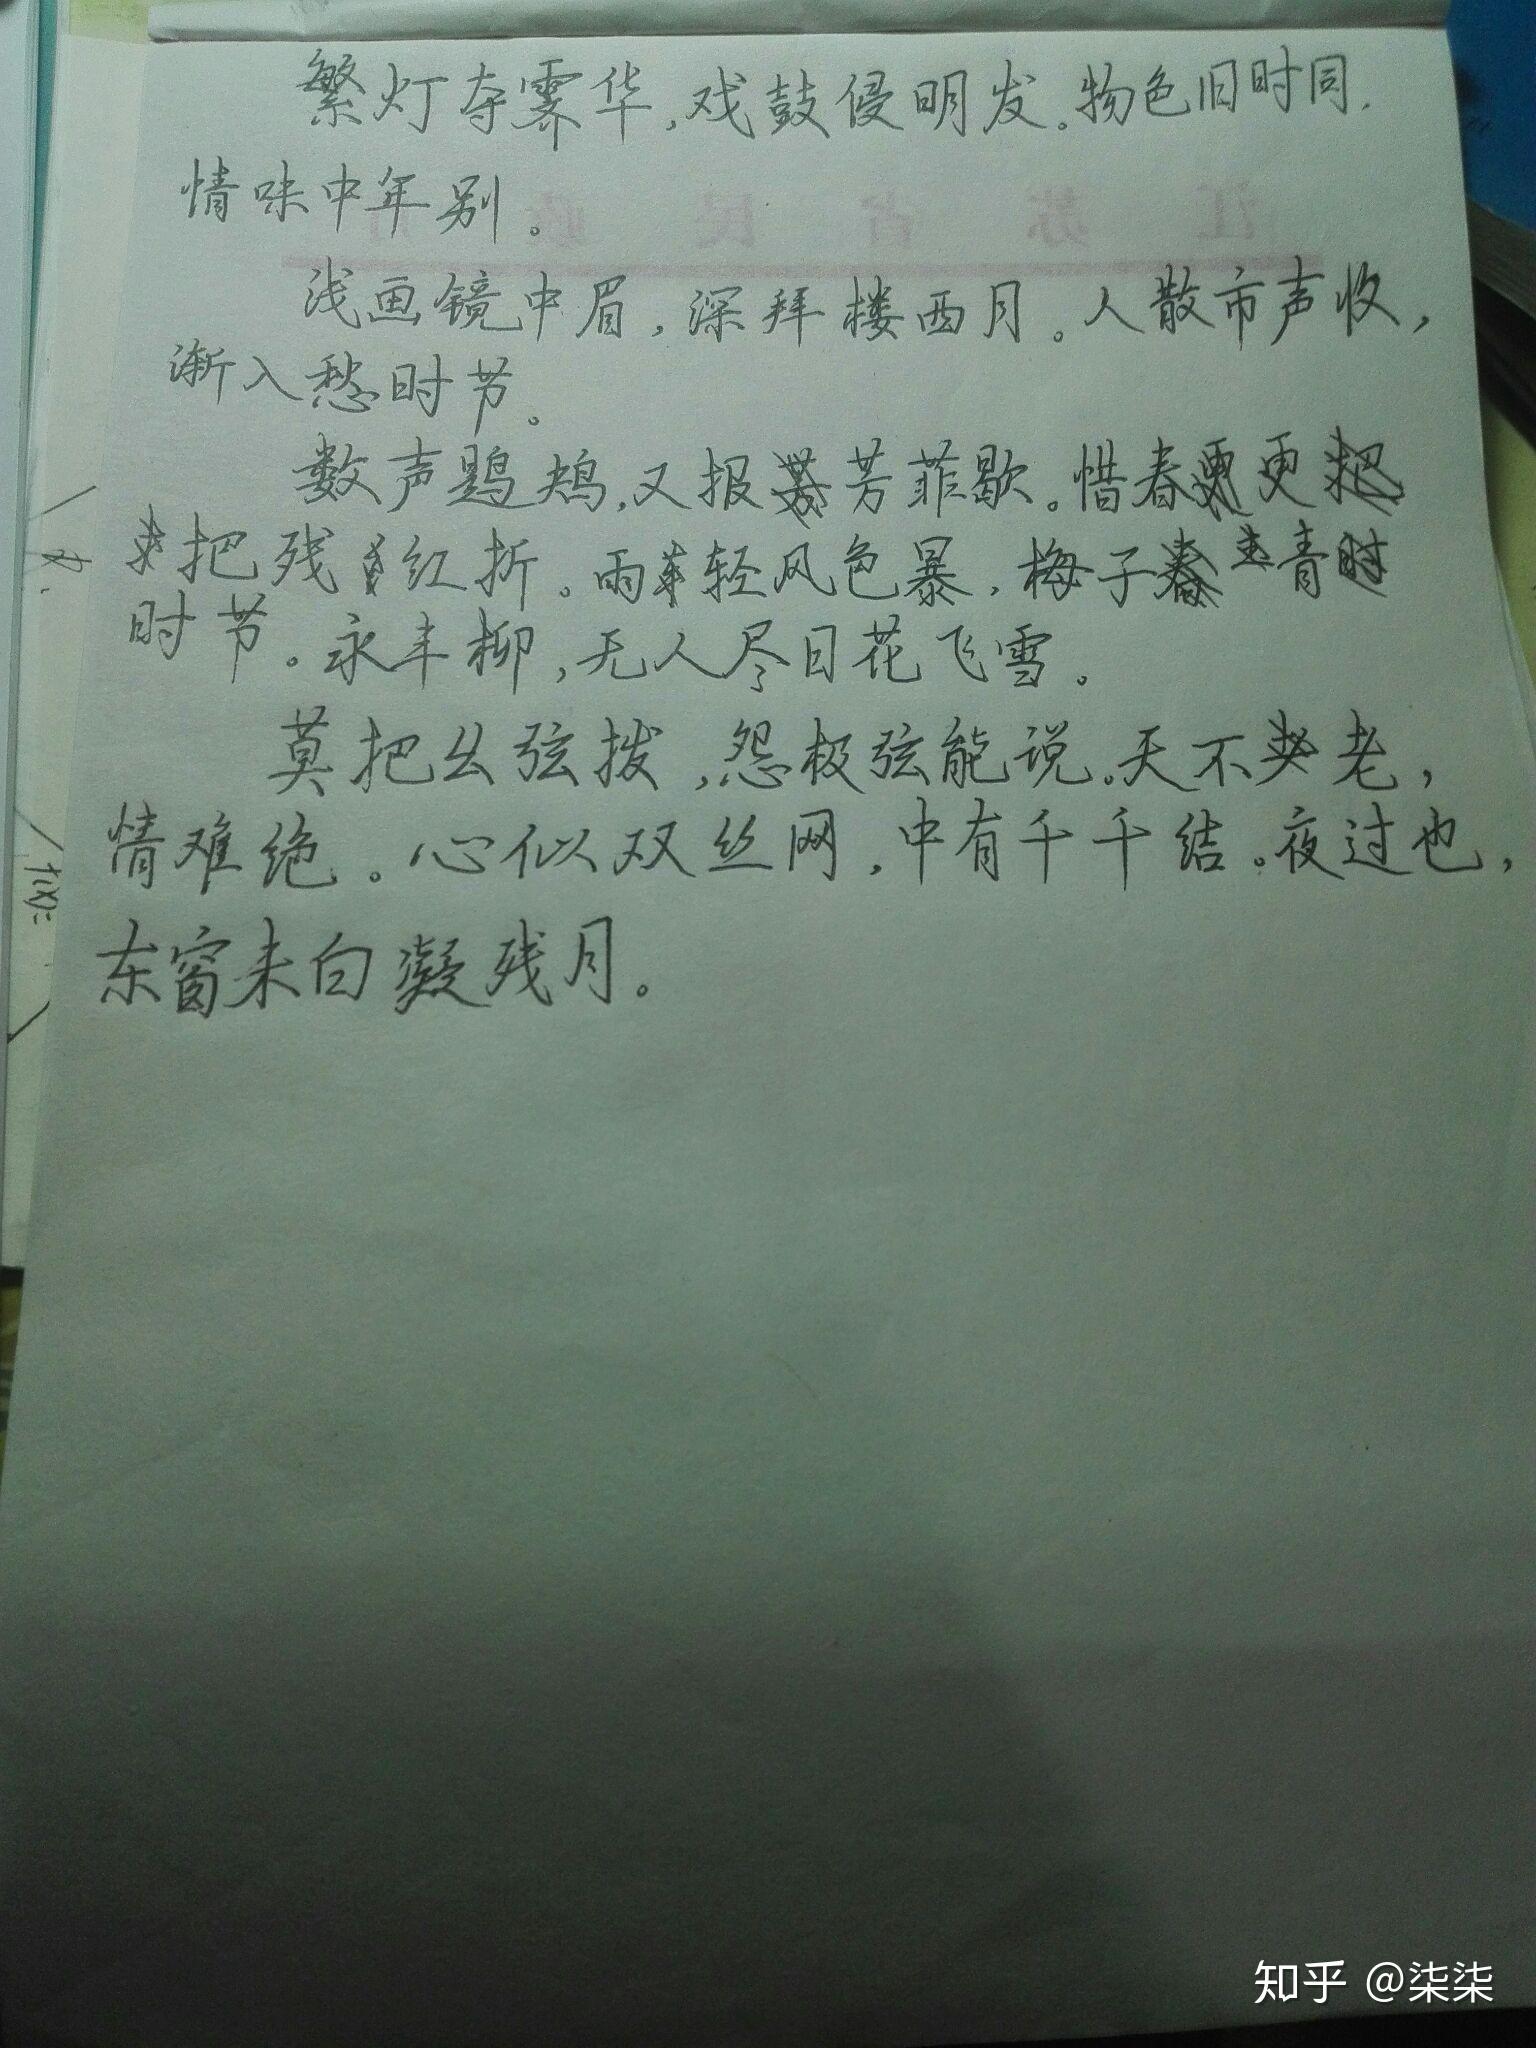 繁灯夺霁华，戏鼓侵明发。物色旧时同，
情味中年别。
浅画镜中眉，深拜楼西月。人散市声收，
渐入愁时节。
数声鹍鴂，又报芳菲歇。惜春更
把残红折。雨轻风色暴，梅子青
时节。永丰柳，无人尽日花飞雪。
莫把幺弦拨，怨极弦能说。天不老，
情难绝。心似双丝网，中有千千结。夜过也，
东窗未白凝残月。
江苏省民
知乎 @柒柒